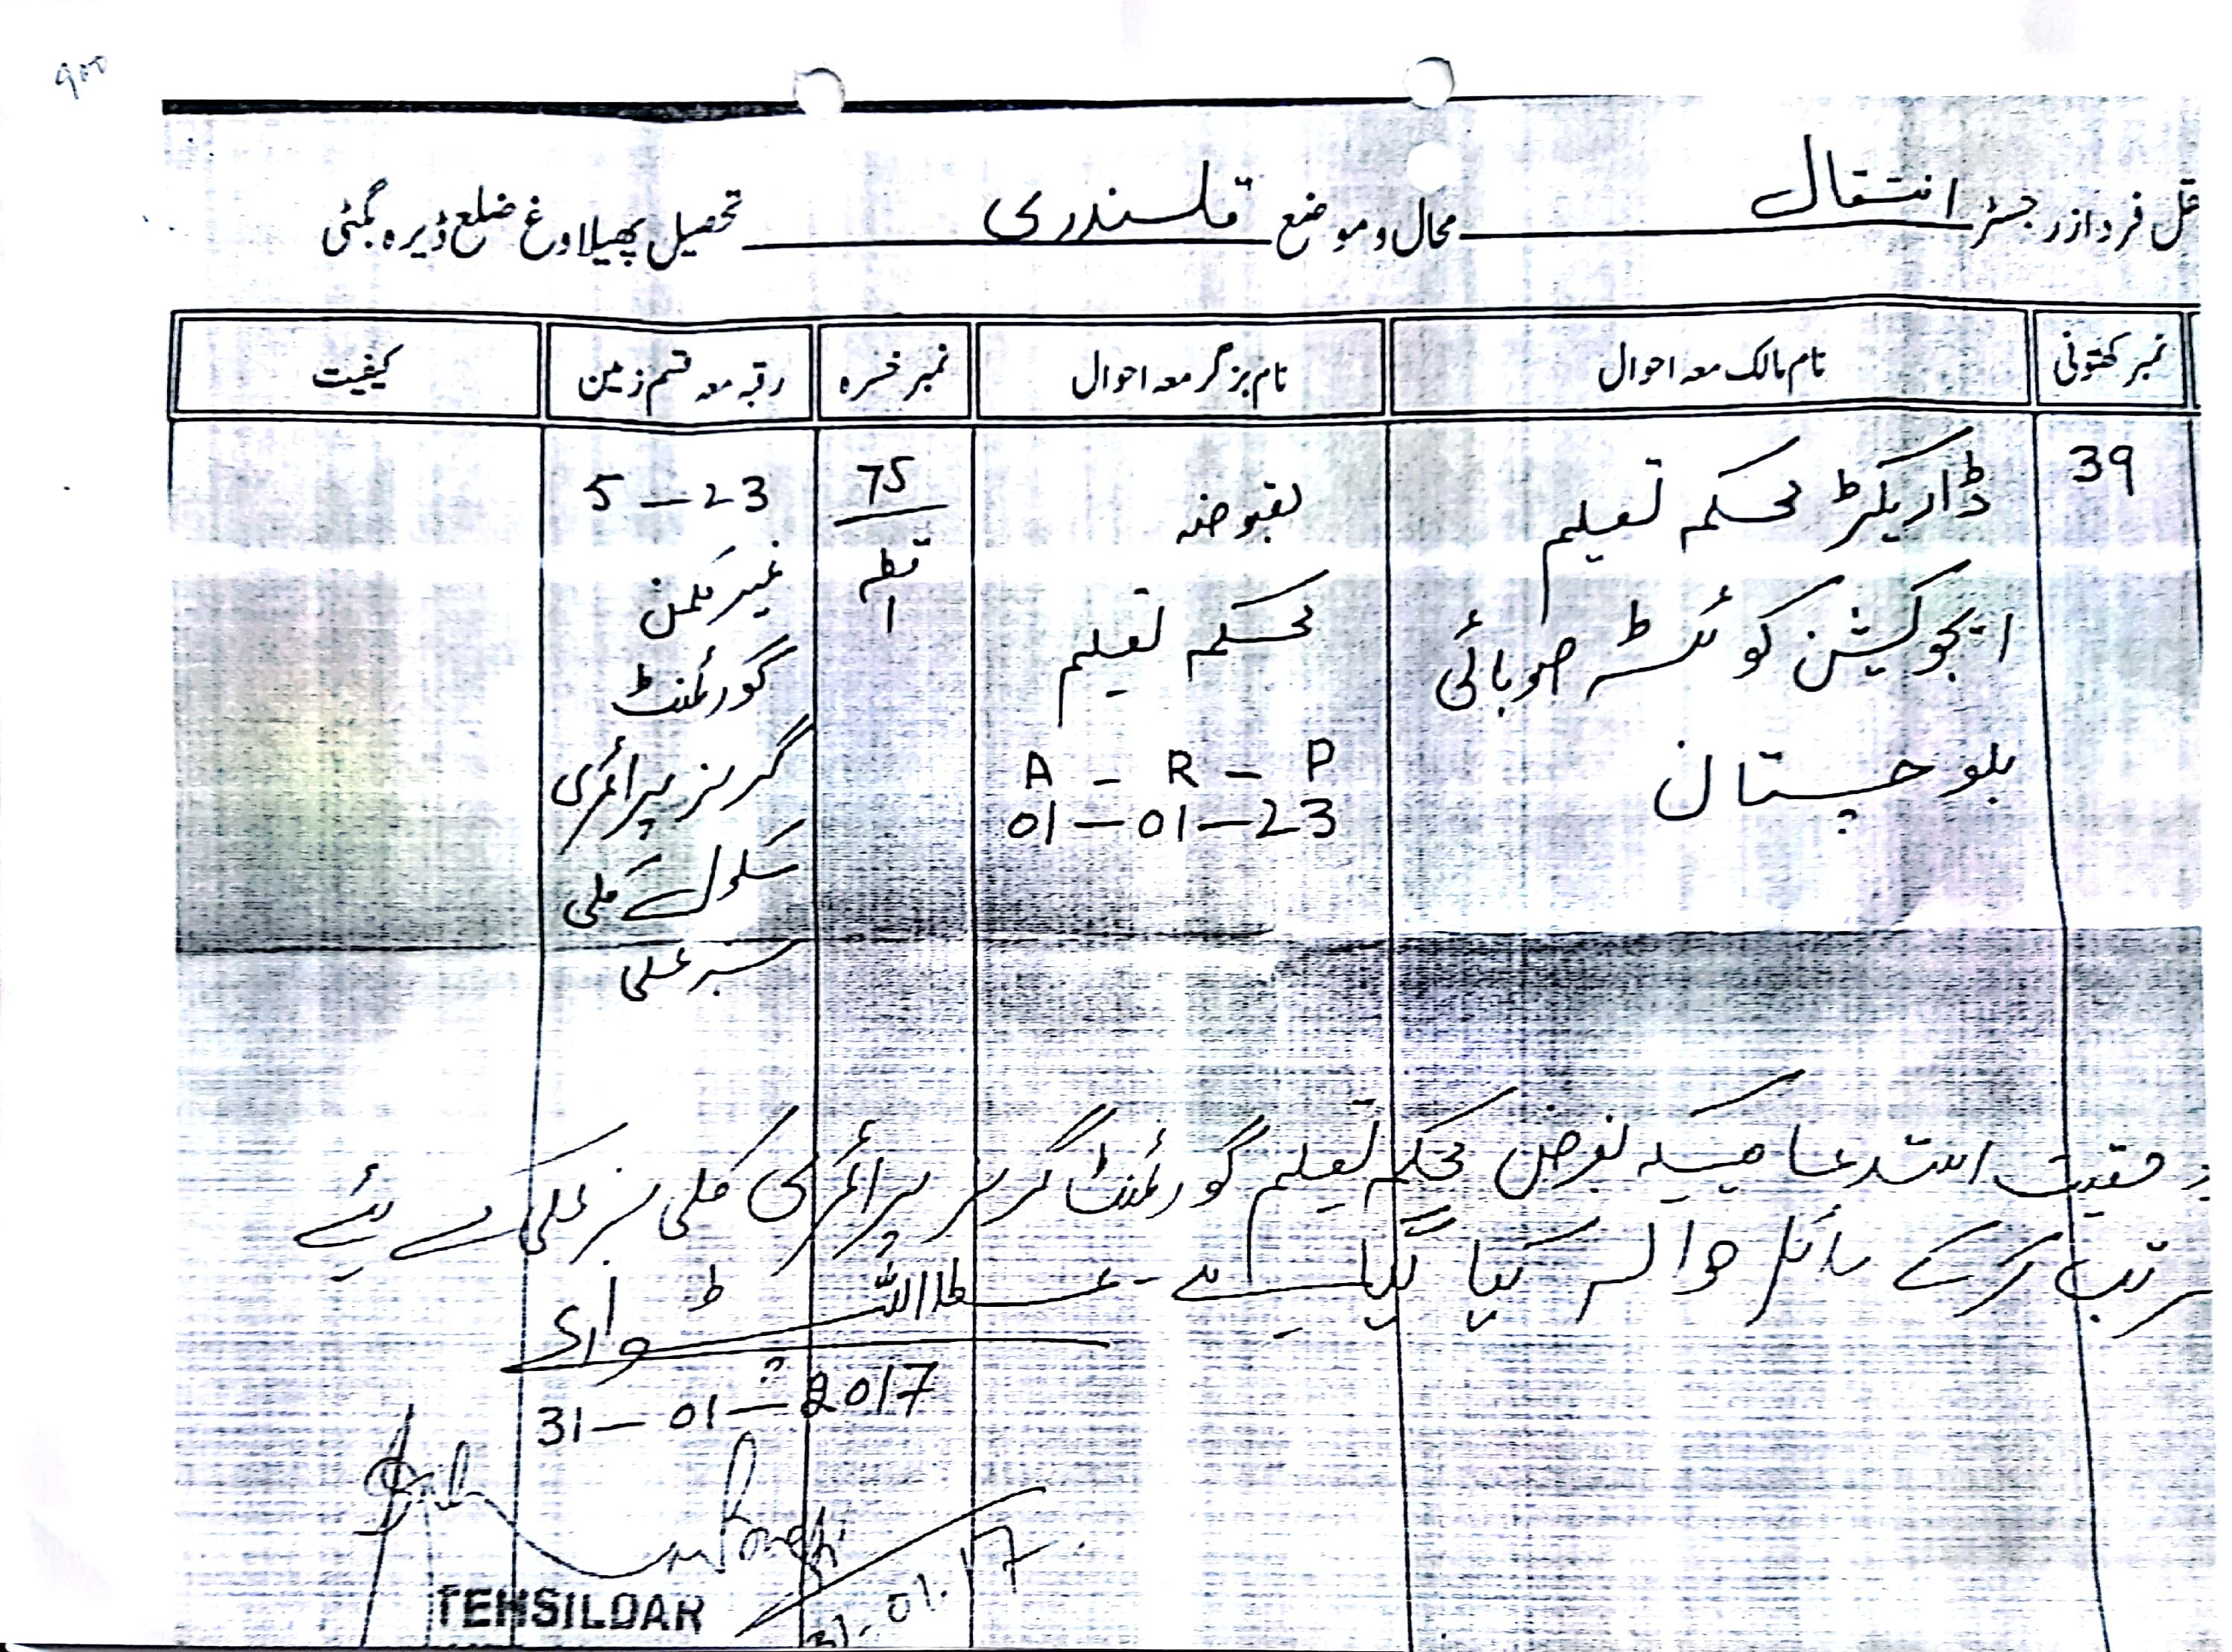 900
نقل فرد از رجسٹر انتقال محال و موضع قلندری تحصیل پھیلاوغ ضلع ڈیرہ بگٹی
نمبر کھتونی نام مالک معہ احوال نام بزگر معہ احوال نمبر خسرہ رقبہ معہ قسم زمین کیفیت
39 ڈاریکٹر محکمہ تعلیم مقبوضہ 75 5-23
ایجوکیشن کوئٹہ صوبائی محکمہ تعلیم قطعہ 1 غیر ممکن
بلوچستان A - R - P گورنمنٹ
01-01-23 گرلز پرائمری
سکول کلی
شیر علی
استدعا بغرض محکمہ تعلیم گورنمنٹ گرلز پرائمری کلی شیر علی کے لئے
مرتب کرکے سائل حوالہ کیا گیا ہے - عطااللہ پٹواری
31-01-2017
TEHSILDAR
31.01.17